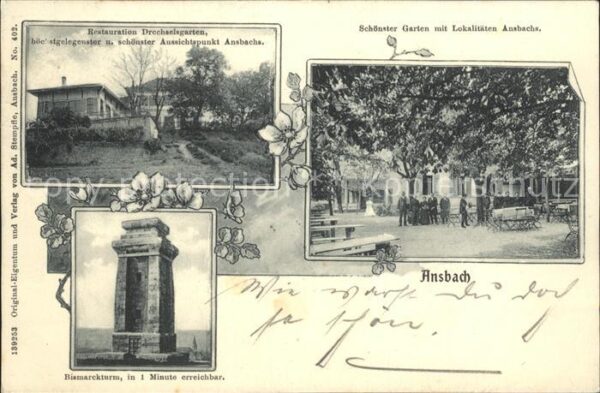 Restauration Drechselsgarten,
höchstgelegenster u. schönster Aussichtspunkt Ansbachs.
Schönster Garten mit Lokalitäten Ansbachs.
139253 Original-Eigentum und Verlag von Ad. Stempfle, Ansbach. No. 402.
Ansbach
Wie warst du doch
so schön.
Bismarckturm, in 1 Minute erreichbar.